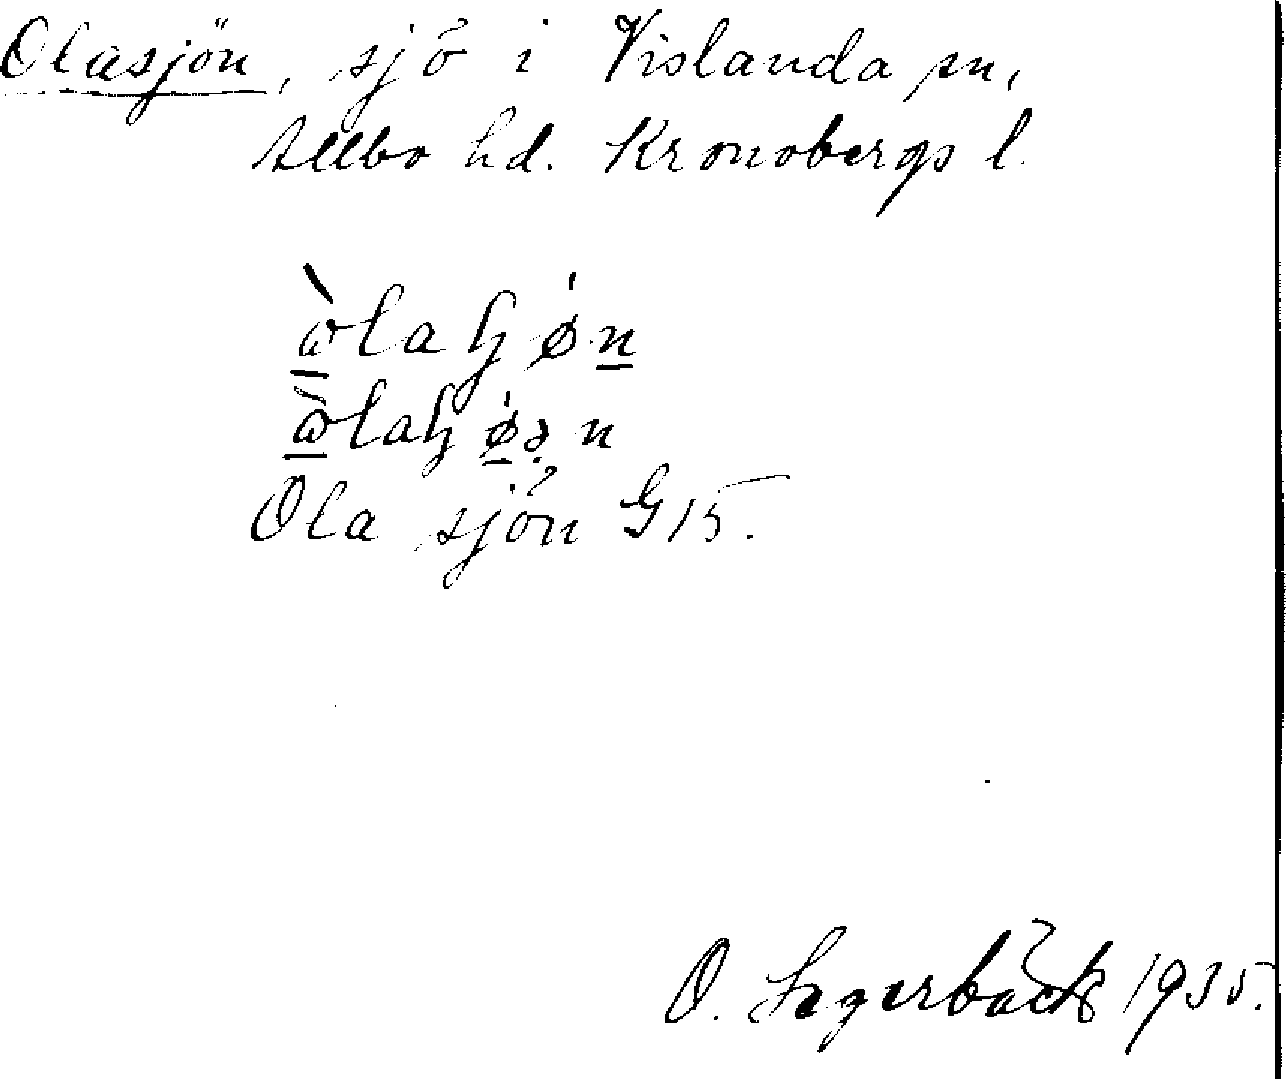 Olasjön, sjö i Vislanda sn,
Allbo hd. Kronobergs l.
Ola sjön G15.
O. Lagerbäck 1935.